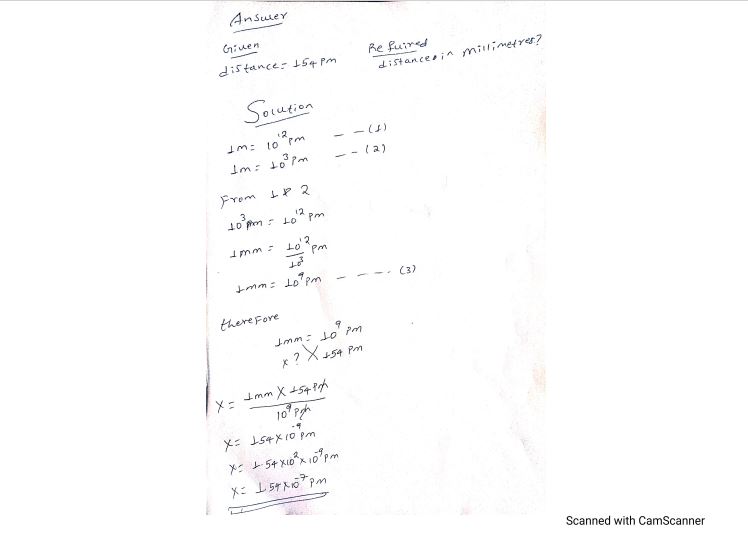 Answer
Given
Refuired
distance = 154 pm
distance in millimetres?
Solution
1m = 10¹² pm - - (1)
1m = 10³ pm - - (2)
From 1 & 2
10³ pm = 10¹² pm
1mm = 10¹² pm
10³
1mm = 10⁹ pm - - - - (3)
therefore
1mm = 10⁹ pm
x ? X 154 pm
X = 1mm X 154 pm
10⁹ pm
X = 154 X 10⁻⁹ pm
X = 1.54 X 10² X 10⁻⁹ pm
X = 1.54 X 10⁻⁷ pm
Scanned with CamScanner